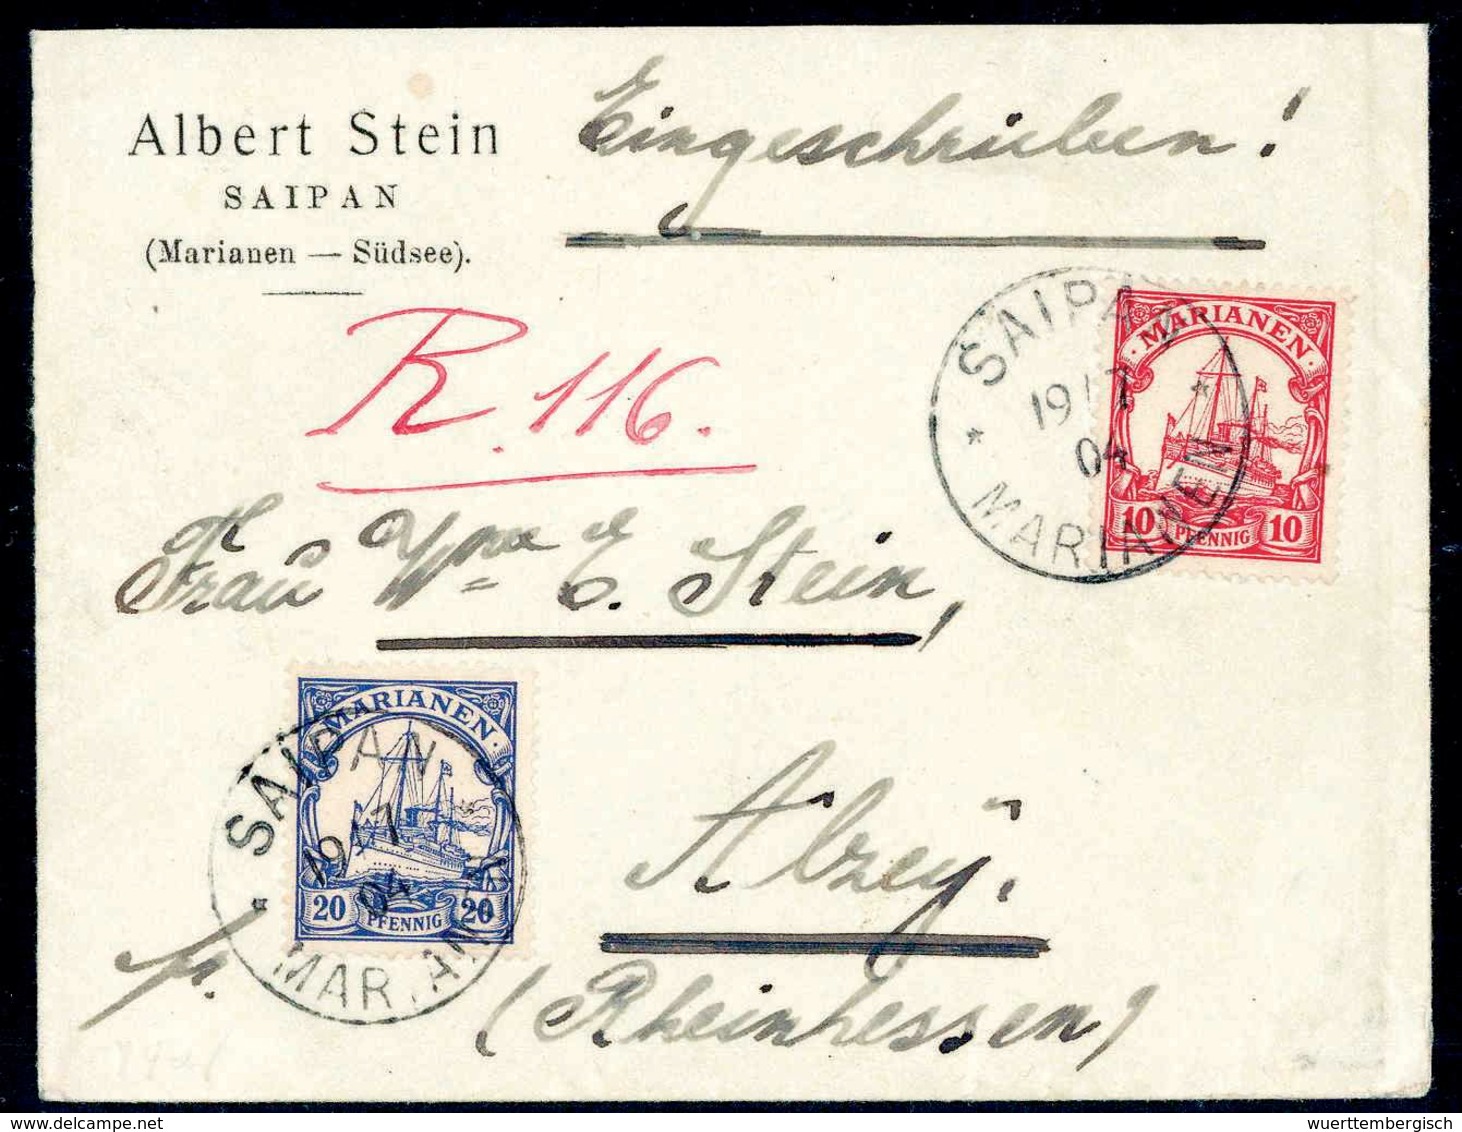 Albert Stein
SAIPAN
(Marianen — Südsee).
Eingeschrieben!
R. 116.
SAIPAN
19/7
04
MARIANEN
MARIANEN
10 PFENNIG 10
Frau Wwe E. Stein,
MARIANEN
20 PFENNIG 20
SAIPAN
19/7
04
MARIANEN
Alzey.
(Rheinhessen)
wuerttembergisch